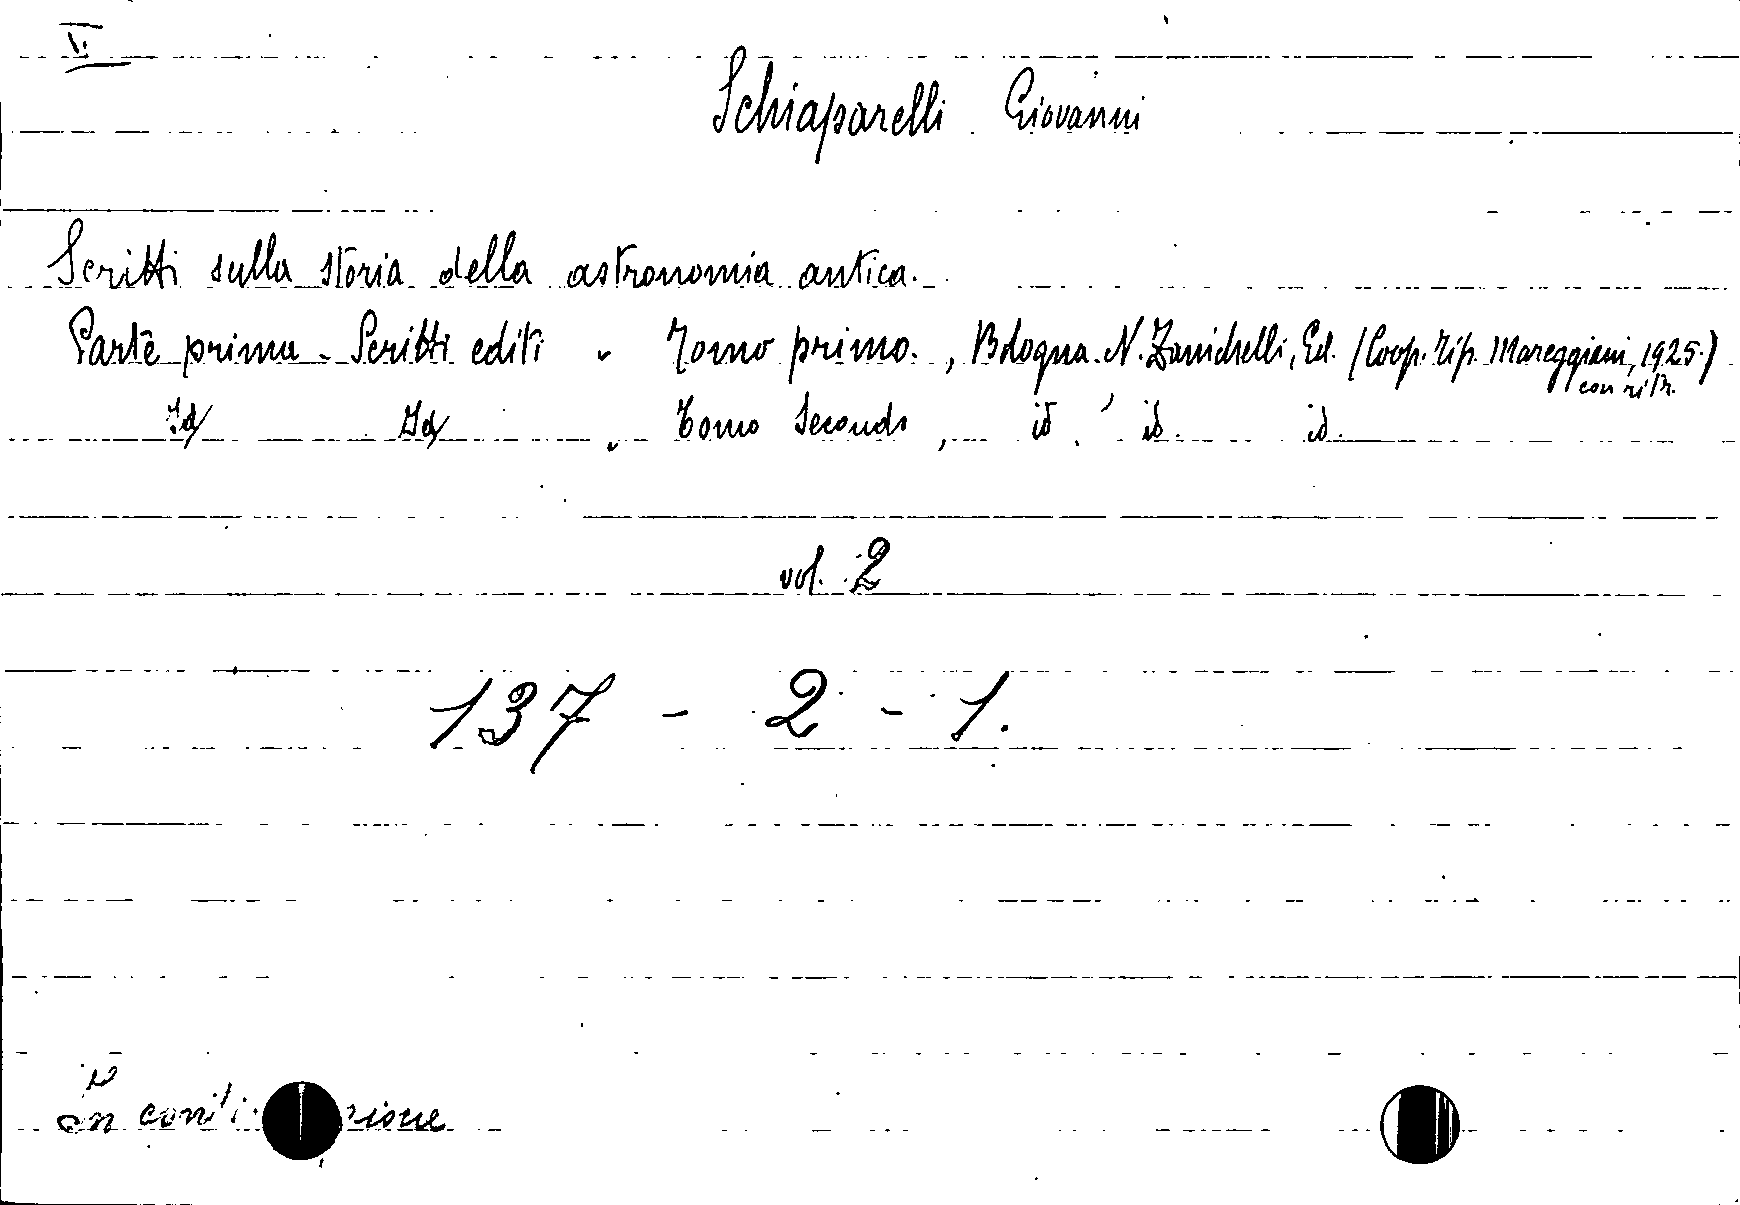 V.
Schiaparelli Giovanni
Scritti sulla storia della astronomia antica.
Parte prima - Scritti editi - Tomo primo. , Bologna. N. Zanichelli, Ed. (Coop. Tip. Mareggiani, 1925.)
con ritr.
Id Id - Tomo Secondo , id , id. id.
vol. 2
137 - 2 - 1.
In